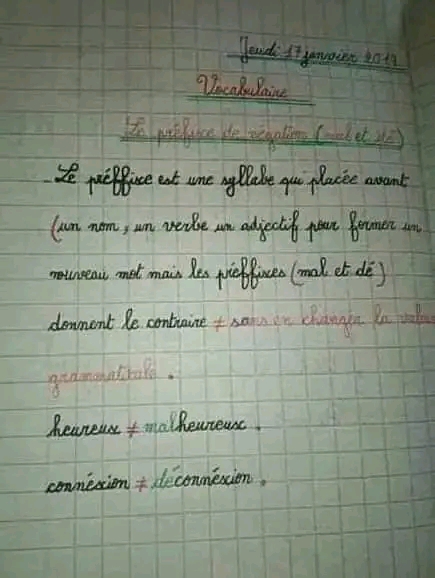 Jeudi 17 janvier 2019
Vocabulaire
Le préfixe de négation (mal et dé)
Le préffixe est une syllabe qui placée avant
(un nom, un verbe un adjectif pour former un
nouveau mot mais les préffixes (mal et dé)
donnent le contraire ≠ sans en changer la valeur
grammaticale.
heureux ≠ malheureux.
connéxion ≠ déconnéxion.